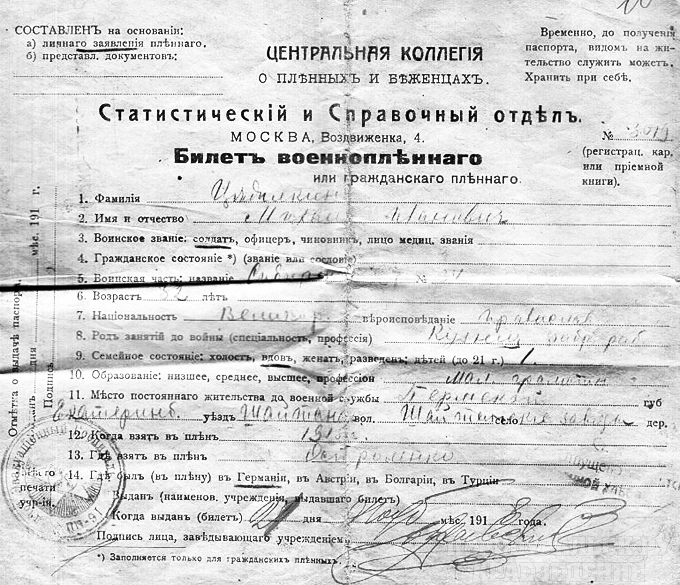 СОСТАВЛЕНЪ на основаніи:
а) личнаго заявленія плѣннаго.
б) представл. документовъ:
ЦЕНТРАЛЬНАЯ КОЛЛЕГІЯ
О ПЛѢННЫХЪ И БѢЖЕНЦАХЪ.
Временно, до полученія
паспорта, видомъ на жи-
тельство служить можетъ.
Хранить при себѣ.
Статистическій и Справочный отдѣлъ.
МОСКВА, Воздвиженка, 4.
№
(регистрац. кар.
или пріемной
книги).
Билетъ военноплѣннаго
или гражданскаго плѣннаго.
1. Фамилія
2. Имя и отчество Ивановичъ
3. Воинское званіе: солдатъ, офицеръ, чиновникъ, лицо медиц. званія
4. Гражданское состояніе *) (званіе или сословіе)
5. Воинская часть: названіе №
6. Возрастъ 32 лѣтъ
7. Національность Великор вѣроисповѣданіе Православ
8. Родъ занятій до войны (спеціальность, профессія) Кузнец
9. Семейное состояніе: холостъ, вдовъ, женатъ, разведенъ; дѣтей (до 21 г.) 1.
10. Образованіе: низшее, среднее, высшее, профессіон Мал. грамотн
11. Мѣсто постояннаго жительства до военной службы Пермской губ
Екатеринб. уѣздъ Шайтан вол. село дер.
12. Когда взятъ въ плѣнъ
13. Гдѣ взятъ въ плѣнъ
14. Гдѣ былъ (въ плѣну) въ Германіи, въ Австріи, въ Болгаріи, въ Турціи
Выданъ (наименов. учрежденія, выдавшаго билетъ)
Когда выданъ (билетъ) 21 дня мѣс. 1918 года.
Подпись лица, завѣдывающаго учрежденіемъ
*) Заполняется только для гражданскихъ плѣнныхъ.
Отмѣтка о выдачѣ паспорта.
дня мѣс. 191 г.
Подпись
Мѣсто
печати
учр-ія.